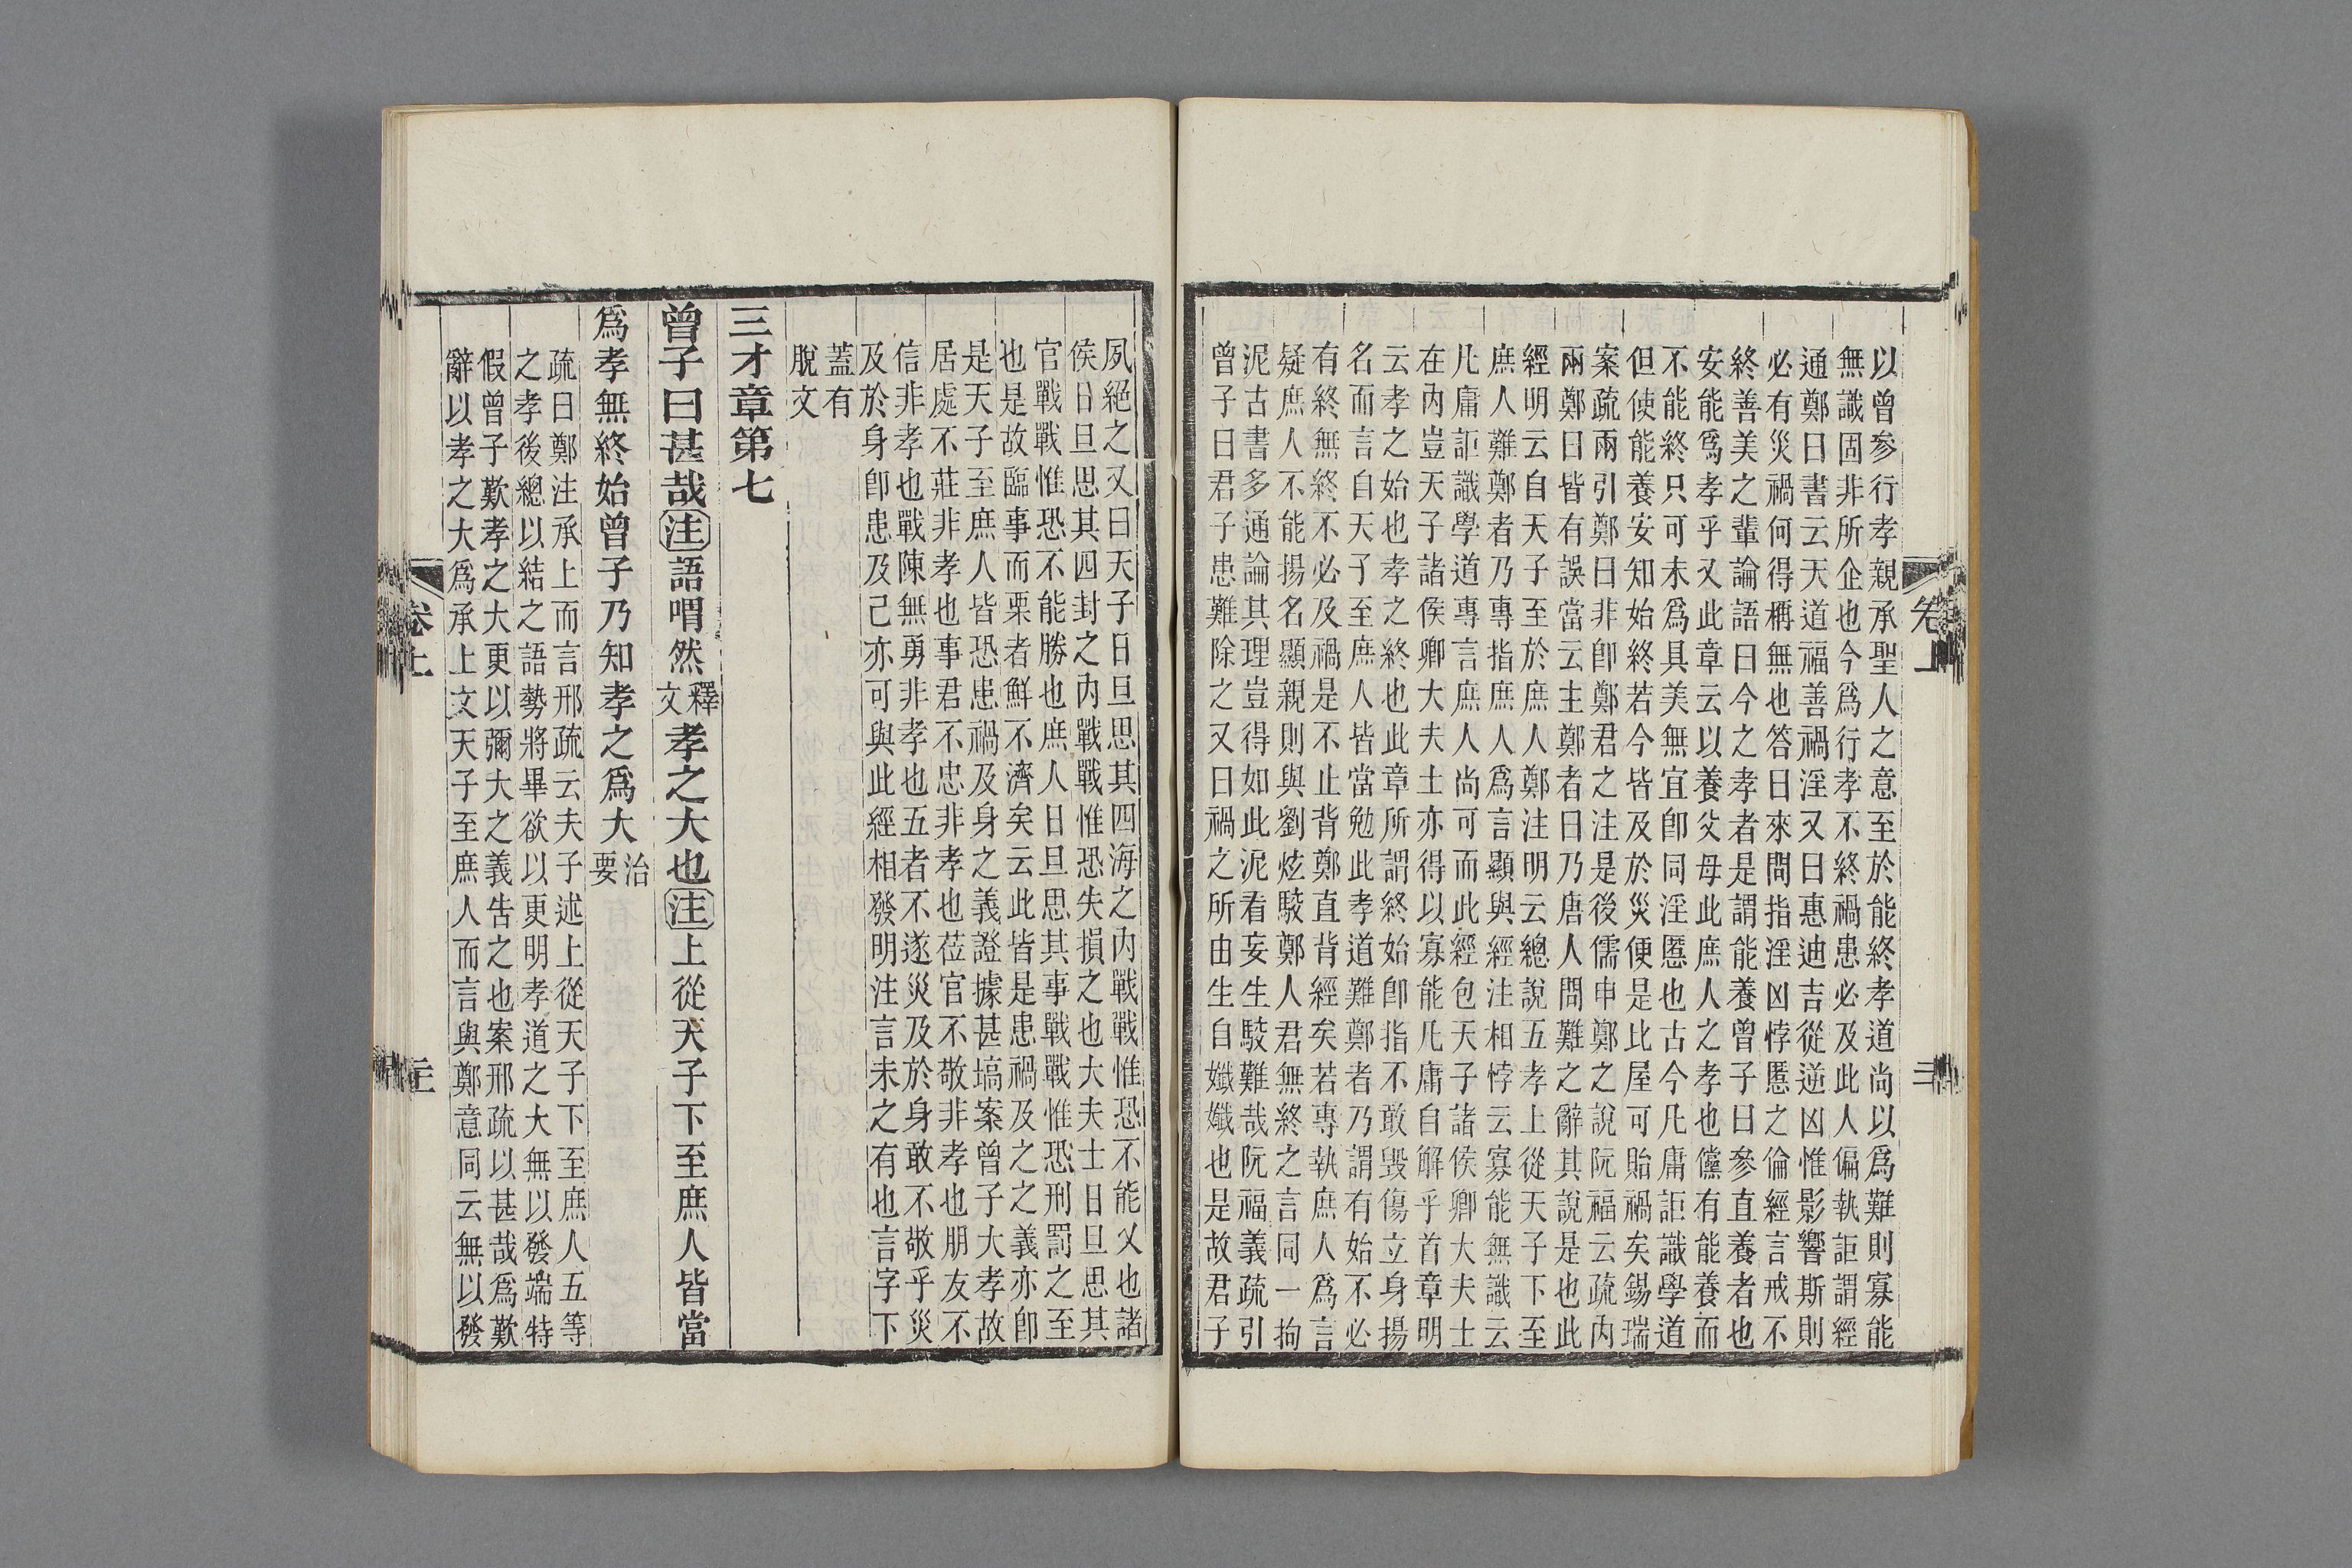 以曾參行孝親承聖人之意至於能終孝道尚以爲難則寡能
無識固非所企也今爲行孝不終禍患必及此人偏執詎謂經
通鄭曰書云天道福善禍淫又曰惠迪吉從逆凶惟影響斯則
必有災禍何得稱無也答曰來問指淫凶悖慝之倫經言戒不
終善美之輩論語曰今之孝者是謂能養曾子曰參直養者也
安能爲孝乎又此章云以養父母此庶人之孝也儻有能養而
不能終只可未爲具美無宜卽同淫慝也古今凡庸詎識學道
但使能養安知始終若今皆及於災便是比屋可貽禍矣錫瑞
案疏兩引鄭曰非卽鄭君之注是後儒申鄭之說阮福云疏內
兩鄭曰皆有誤當云主鄭者曰乃唐人問難之辭其說是也此
經明云自天子至於庶人鄭注明云總說五孝上從天子下至
庶人難鄭者乃專指庶人爲言顯與經注相悖云寡能無識云
凡庸詎識學道專言庶人尚可而此經包天子諸侯卿大夫士
在內豈天子諸侯卿大夫士亦得以寡能凡庸自解乎首章明
云孝之始也孝之終也此章所謂終始卽指不敢毀傷立身揚
名而言自天子至庶人皆當勉此孝道難鄭者乃謂有始不必
有終無終不必及禍是不止背鄭直背經矣若專執庶人爲言
疑庶人不能揚名顯親則與劉炫駮鄭人君無終之言同一拘
泥古書多通論其理豈得如此泥看妄生駮難哉阮福義疏引
曾子曰君子患難除之又曰禍之所由生自孅孅也是故君子
夙絕之又曰天子日旦思其四海之內戰戰惟恐不能乂也諸
侯日旦思其四封之內戰戰惟恐失損之也大夫士日旦思其
官戰戰惟恐不能勝也庶人日旦思其事戰戰惟恐刑罰之至
也是故臨事而栗者鮮不濟矣云此皆是患禍及之之義亦卽
是天子至庶人皆恐患禍及身之義證據甚塙案曾子大孝故
居處不莊非孝也事君不忠非孝也莅官不敬非孝也朋友不
信非孝也戰陳無勇非孝也五者不遂災及於身敢不敬乎災
及於身卽患及己亦可與此經相發明注言未之有也言字下
蓋有
脫文
三才章第七
曾子曰甚哉注語喟然釋文孝之大也注上從天子下至庶人皆當
爲孝無終始曾子乃知孝之爲大治要
疏曰鄭注承上而言邢疏云夫子述上從天子下至庶人五等
之孝後總以結之語勢將畢欲以更明孝道之大無以發端特
假曾子歎孝之大更以彌大之義告之也案邢疏以甚哉爲歎
辭以孝之大爲承上文天子至庶人而言與鄭意同云無以發
卷上